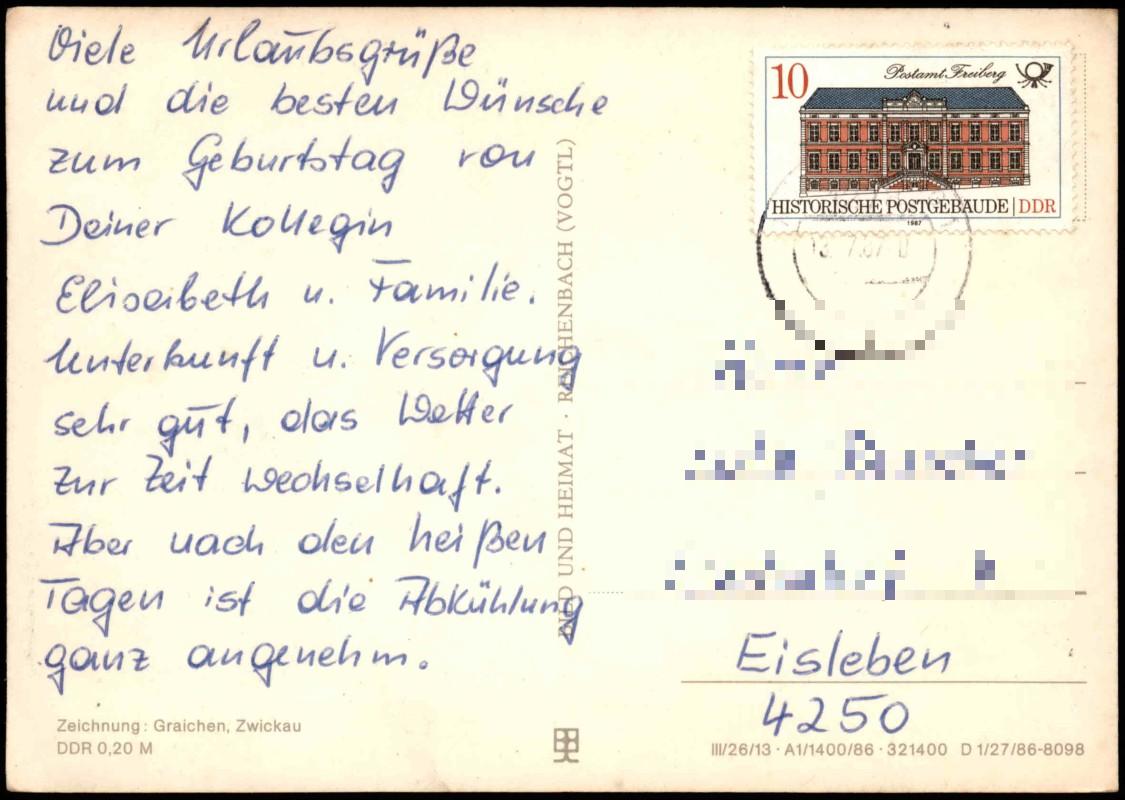 Viele Urlaubsgrüße
und die besten Wünsche
zum Geburtstag von
Deiner Kollegin
Elisabeth u. Familie.
Unterkunft u. Versorgung
sehr gut, das Wetter
zur Zeit wechselhaft.
Aber nach den heißen
Tagen ist die Abkühlung
ganz angenehm.
Zeichnung: Graichen, Zwickau
DDR 0,20 M
BILD UND HEIMAT · REICHENBACH (VOGTL)
10
Postamt Freiberg
HISTORISCHE POSTGEBÄUDE | DDR
1987
13.7.87
Eisleben
4250
III/26/13 · A1/1400/86 · 321400 D 1/27/86-8098